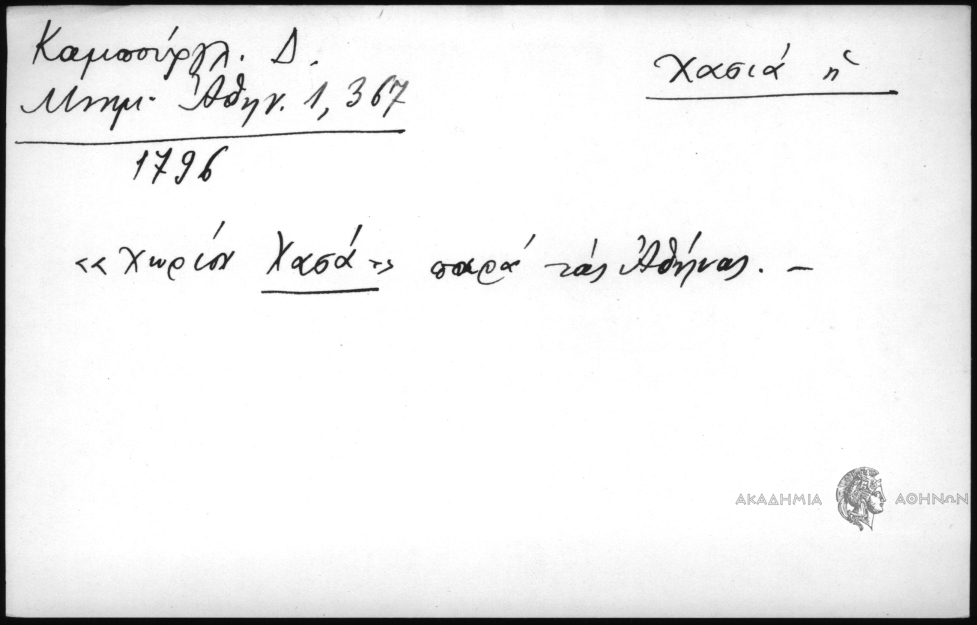 Καμπούργλ. Δ.
Μνημ. Ἀθην. 1, 367
1796
Χασιά ἡ
«χωρίον Χασά» παρά τάς Ἀθήνας. –
ΑΚΑΔΗΜΙΑ ΑΘΗΝΩΝ